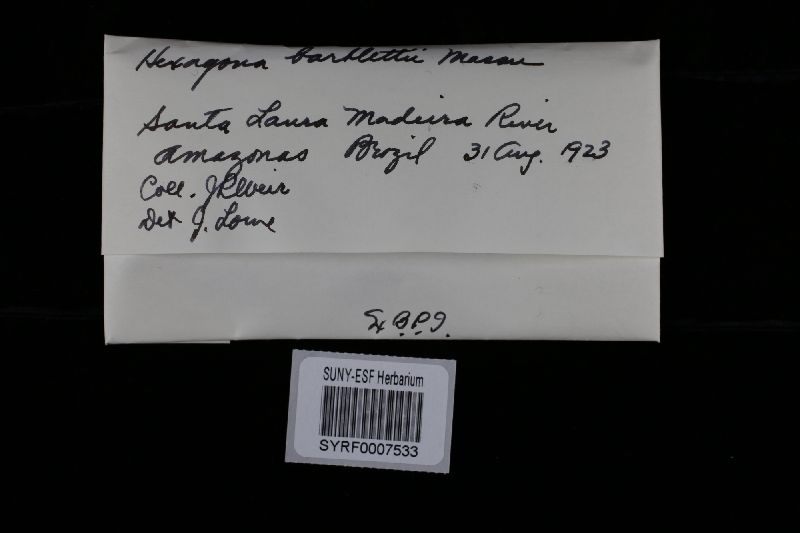 Hexagona bartlettii Massee
Santa Laura Madeira River
Amazonas Brazil 31 Aug. 1923
Coll. J R Weir
Det J. Lowe
Ex B.P.I.
SUNY-ESF Herbarium
SYRF0007533